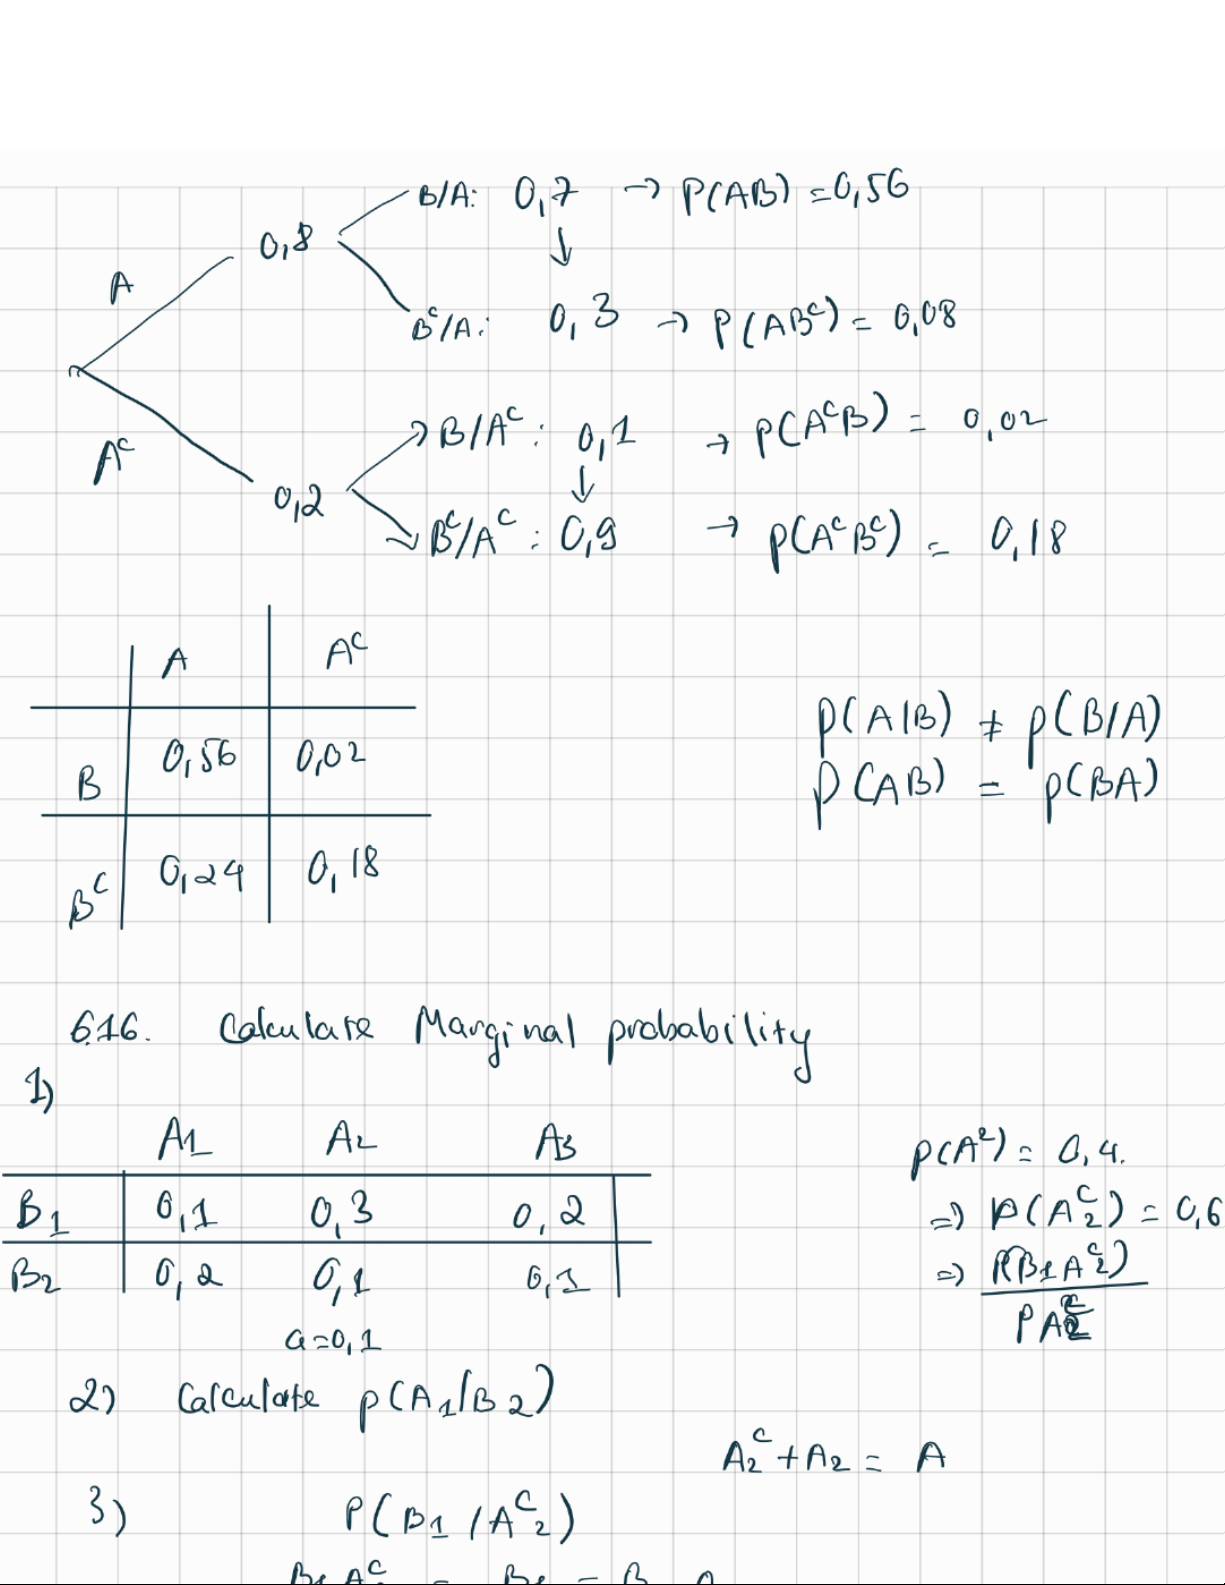 B/A: 0,7 → P(AB) = 0,56
0,8
A
↓
Bᶜ/A: 0,3 → P(ABᶜ) = 0,08
B/Aᶜ: 0,1 → P(AᶜB) = 0,02
Aᶜ
↓
0,2
Bᶜ/Aᶜ: 0,9 → P(AᶜBᶜ) = 0,18
A Aᶜ
B 0,56 0,02
Bᶜ 0,24 0,18
P(A|B) ≠ P(B/A)
P(AB) = P(BA)
6.16. Calculate Marginal probability
1)
A1 A2 A3
B1 0,1 0,3 0,2
B2 0,2 0,1 0,1
a=0,1
P(A²) = 0,4.
=> P(A₂ᶜ) = 0,6
=> P(B1A₂ᶜ)
PA
2) Calculate P(A1/B2)
A₂ᶜ + A2 = A
3) P(B1/Aᶜ₂)